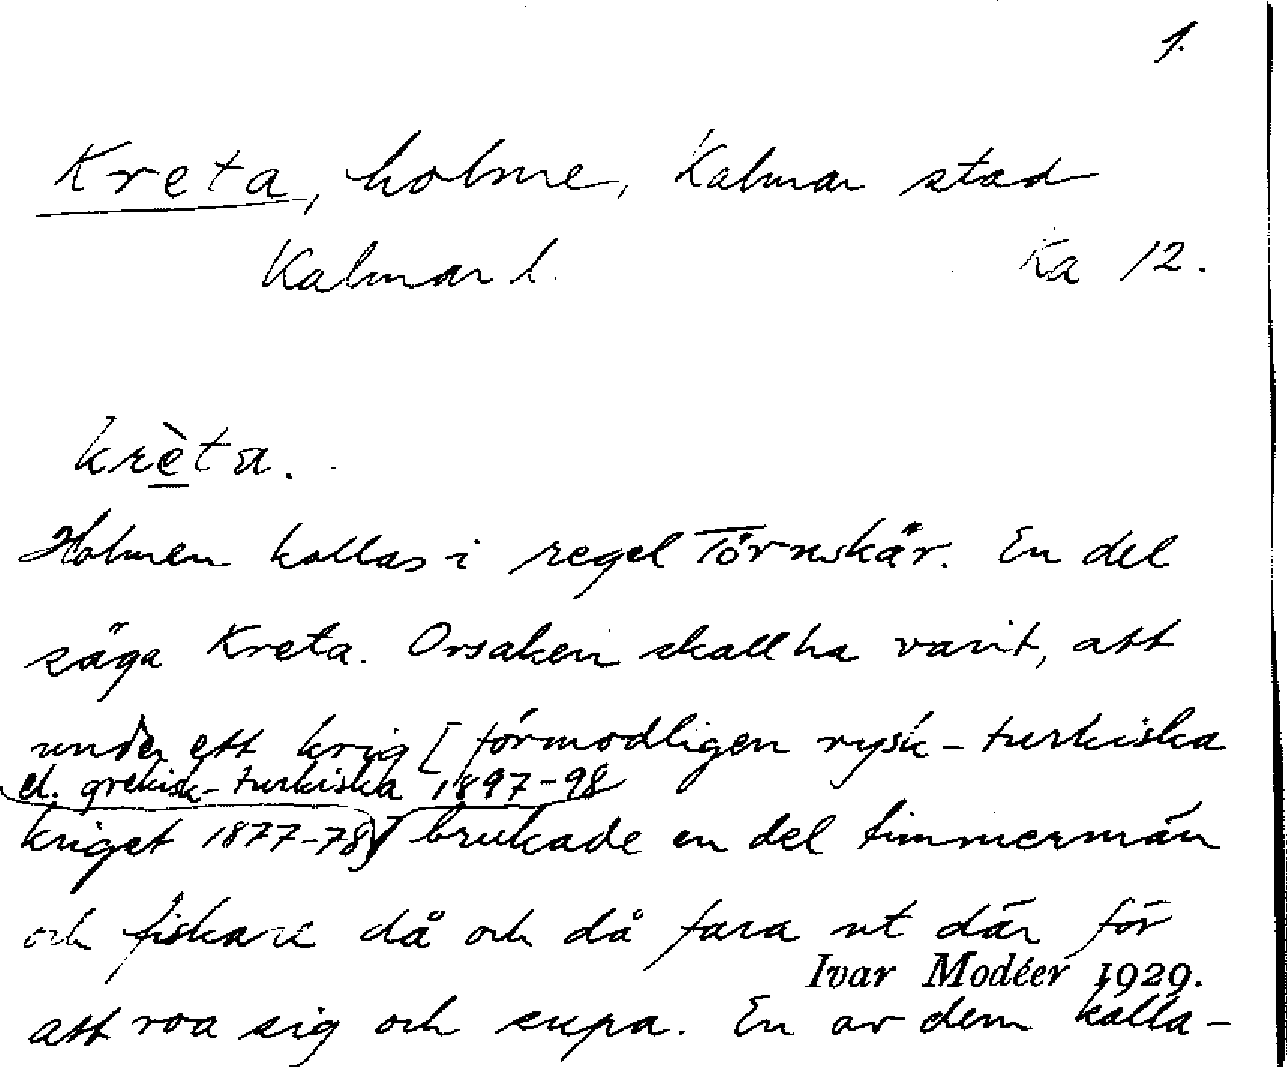 1.
Kreta, holme, Kalmar stad
Kalmar l. Ka 12.
krèta.
Holmen kallas i regel Törnskär. En del
säga Kreta. Orsaken skall ha varit, att
under ett krig [förmodligen rysk-turkiska
el. grekisk-turkiska 1897-98
kriget 1877-78] brukade en del timmermän
och fiskare då och då fara ut där för
Ivar Modéer 1929.
att roa sig och supa. En av dem kalla-